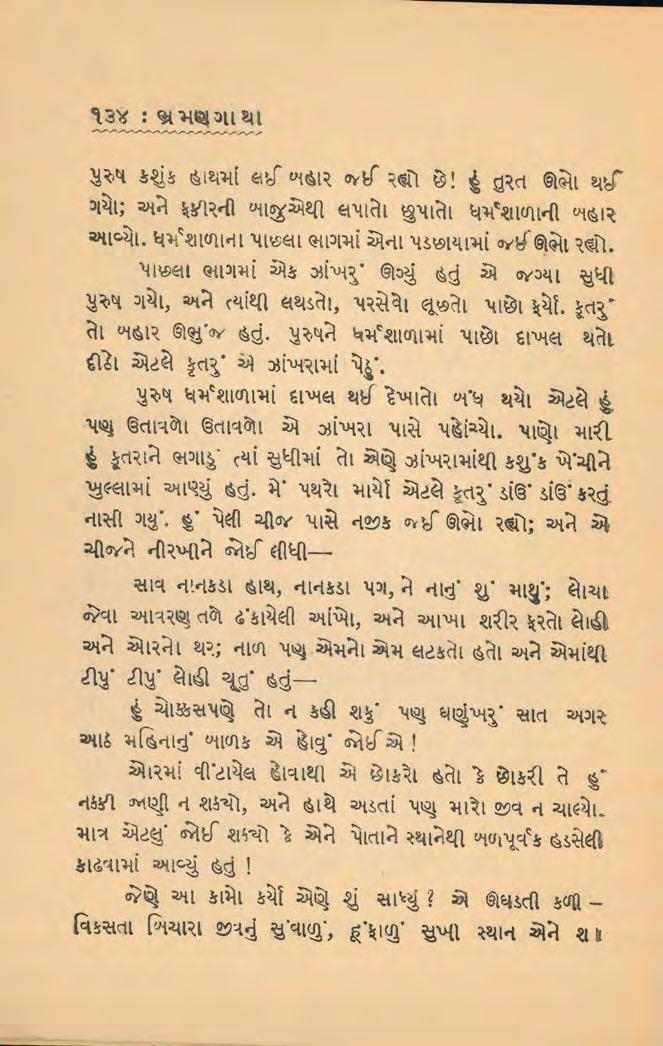 ૧૩૪ : ભ્રમણગાથા
પુરુષ કશુંક હાથમાં લઈ બહાર જઈ રહ્યો છે! હું તુરત ઊભો થઈ
ગયો; અને ફકીરની બાજુએથી લપાતો છુપાતો ધર્મશાળાની બહાર
આવ્યો. ધર્મશાળાના પાછલા ભાગમાં એના પડછાયામાં જઈ ઊભો રહ્યો.
પાછલા ભાગમાં એક ઝાંખરું ઊગ્યું હતું એ જગ્યા સુધી
પુરુષ ગયો, અને ત્યાંથી લથડતો, પરસેવો લૂછતો પાછો ફર્યો. કૂતરું
તો બહાર ઊભું જ હતું. પુરુષને ધર્મશાળામાં પાછો દાખલ થતો
દીઠો એટલે કૂતરું એ ઝાંખરામાં પેઠું.
પુરુષ ધર્મશાળામાં દાખલ થઈ દેખાતો બંધ થયો એટલે હું
પણ ઉતાવળો ઉતાવળો એ ઝાંખરા પાસે પહોંચ્યો. પાણો મારી
હું કૂતરાને ભગાડું ત્યાં સુધીમાં તો એણે ઝાંખરામાંથી કશુંક ખેંચીને
ખુલ્લામાં આણ્યું હતું. મેં પથરો માર્યો એટલે કૂતરું ડાંઉં ડાંઉં કરતું
નાસી ગયું. હું પેલી ચીજ પાસે નજીક જઈ ઊભો રહ્યો; અને એ
ચીજને નીરખીને જોઈ લીધી—
સાવ નાનકડા હાથ, નાનકડા પગ, ને નાનું શું માથું; લોચા
જેવા આવરણ તળે ઢંકાયેલી આંખો, અને આખા શરીર ફરતો લોહી
અને ઓરનો થર; નાળ પણ એમનો એમ લટકતો હતો અને એમાંથી
ટીપું ટીપું લોહી ચૂતું હતું—
હું ચોક્કસપણે તો ન કહી શકું પણ ઘણુંખરું સાત અગર
આઠ મહિનાનું બાળક એ હોવું જોઈએ!
ઓરમાં વીંટાયેલ હોવાથી એ છોકરો હતો કે છોકરી તે હું
નક્કી જાણી ન શક્યો, અને હાથે અડતાં પણ મારો જીવ ન ચાલ્યો.
માત્ર એટલું જોઈ શક્યો કે એને પોતાને સ્થાનેથી બળપૂર્વક હડસેલી
કાઢવામાં આવ્યું હતું!
જેણે આ કામો કર્યો એણે શું સાધ્યું? એ ઊઘડતી કળી –
વિકસતા બિચારા જીવનું સુંવાળું, હૂંફાળું સુખી સ્થાન એને શા